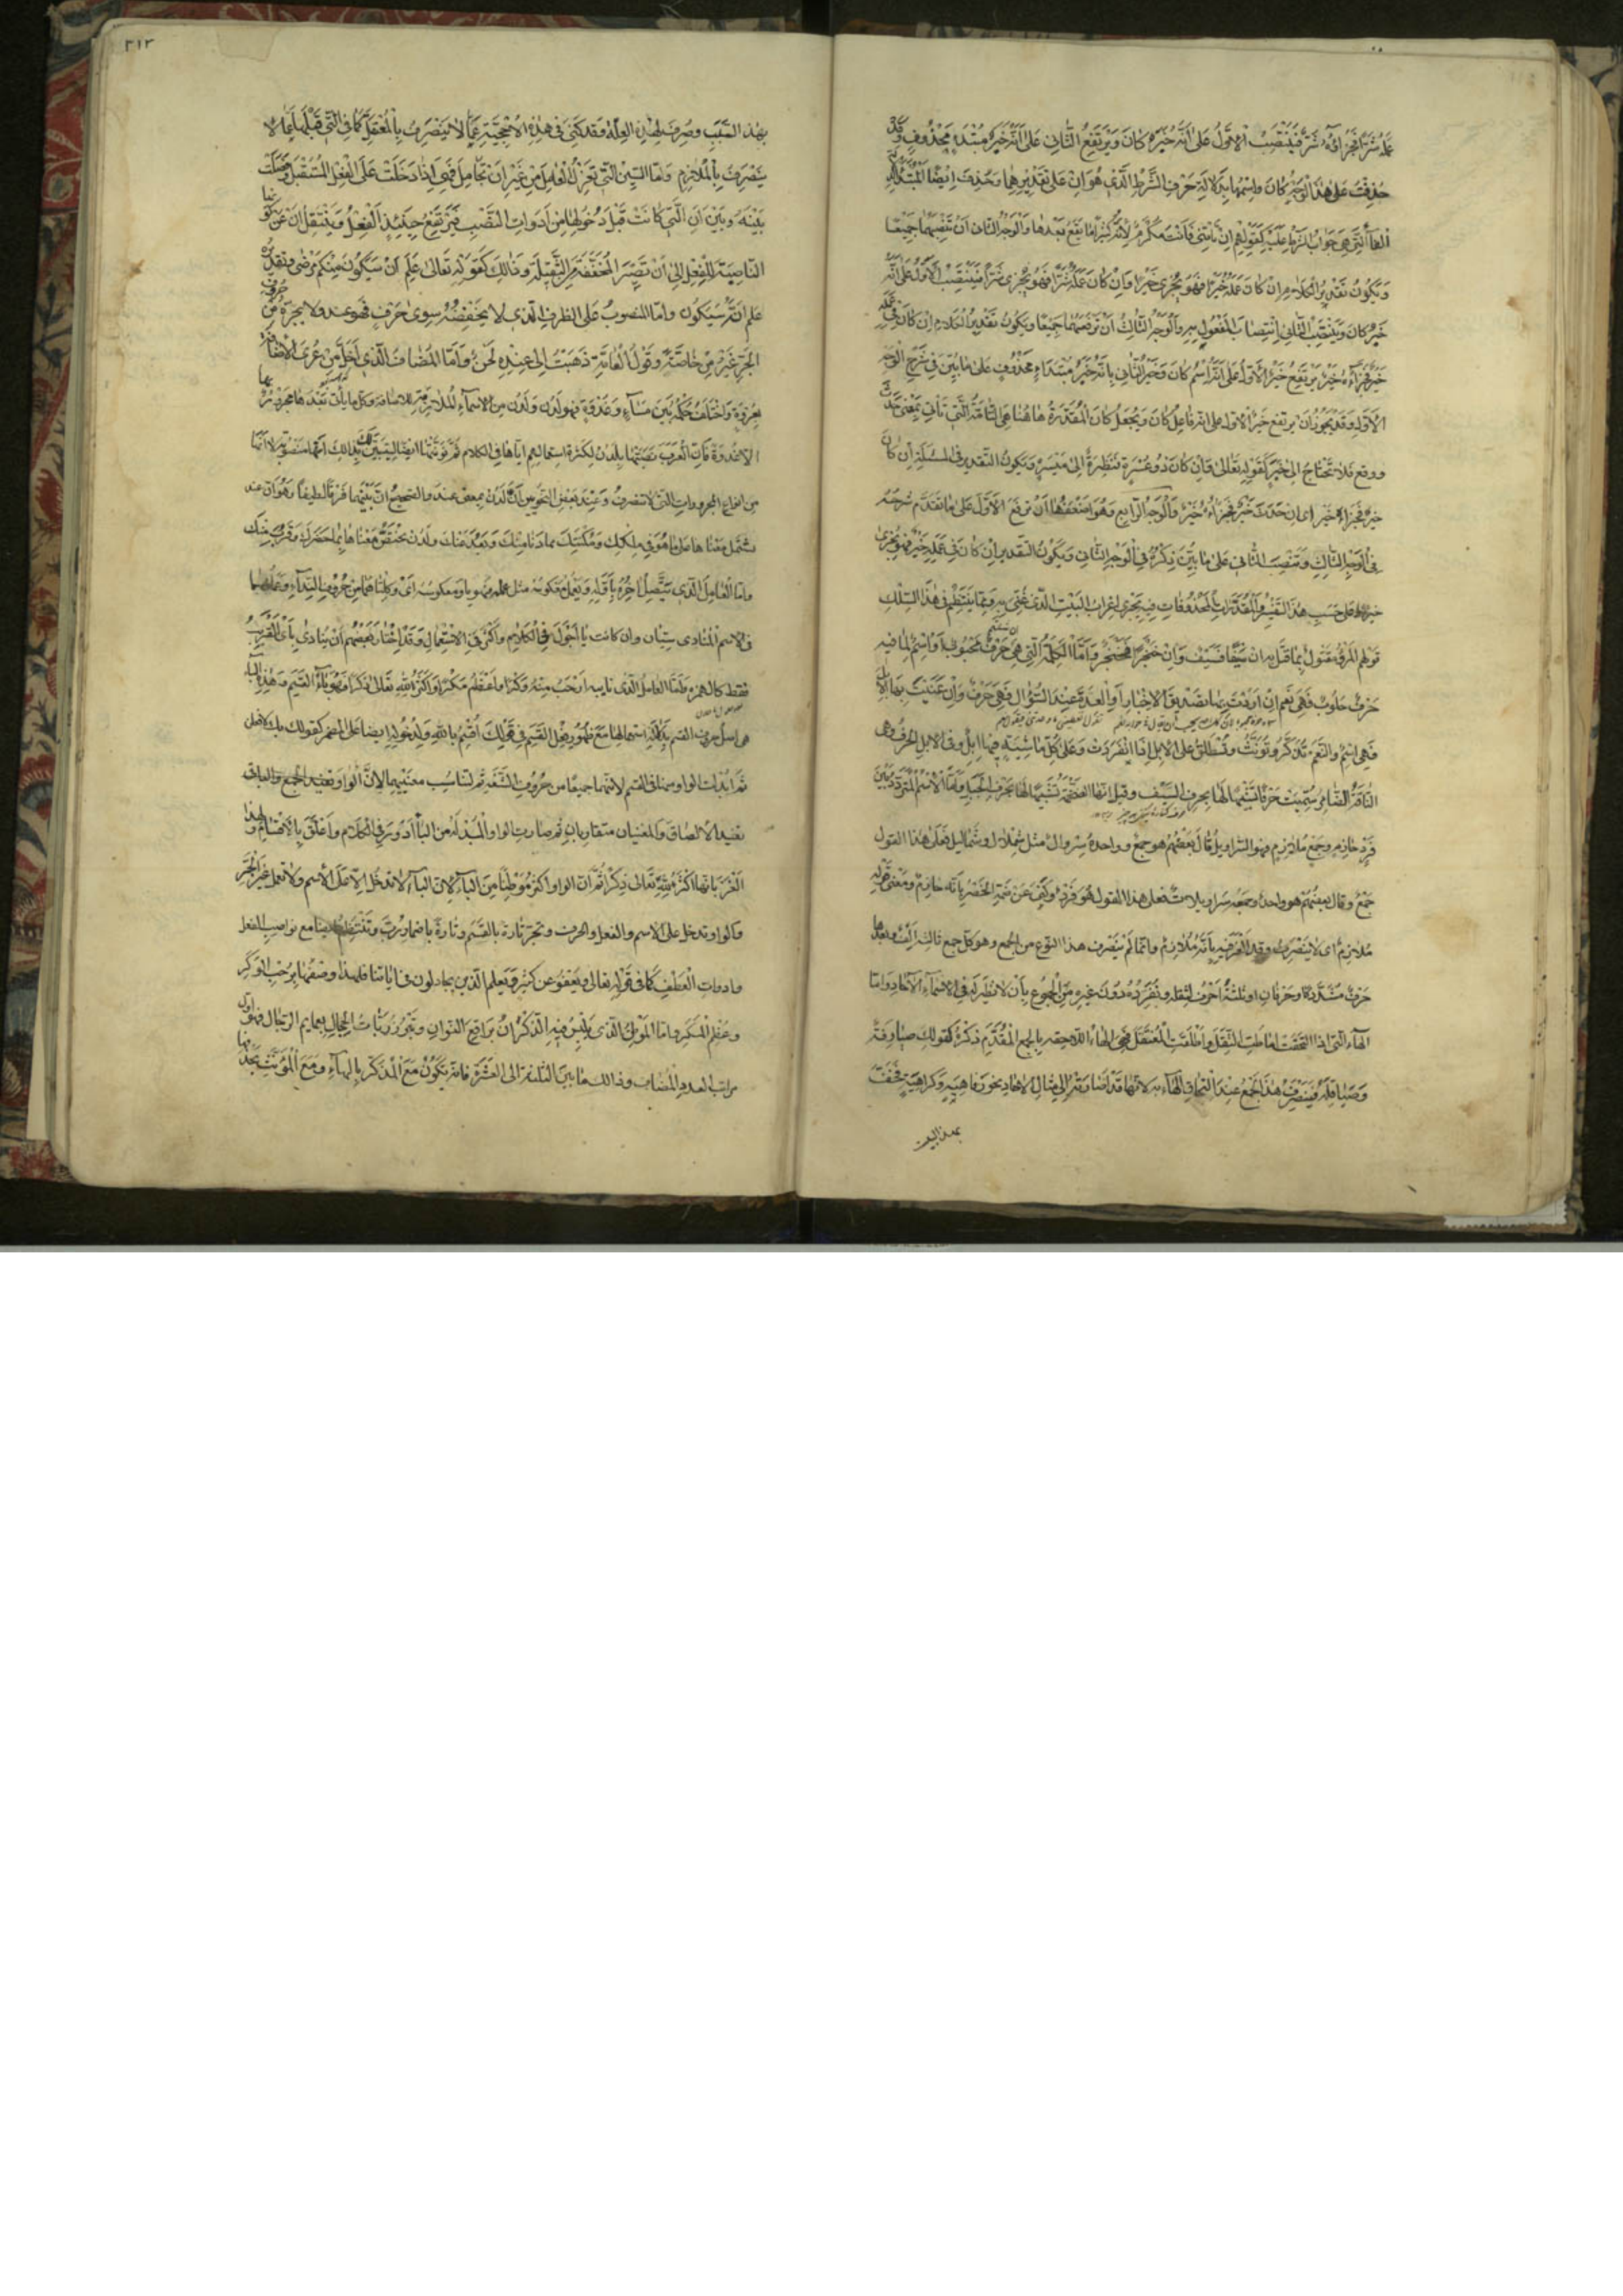 عمله شرا فجزاؤه شر فينتصب الاول على انه خبر كان ويرتفع الثاني على انه خبر مبتدء محذوف وقد
حذفت على هذا الوجه كان واسمها لدلالة حرف الشرط الذي هو ان على تقديرهما وحذف ايضا المبتدأ لدلالة
الفاء التي هي جواب الشرط عليه كقولهم ان تاتني فانت مكرم لانه كثيرا ما يقع بعدها والوجه الثاني ان تنصبهما جميعا
ويكون تقدير الكلام ان كان عمله خيرا فهو يجزى خيرا وان كان عمله شرا فهو يجزى شرا فينتصب الاول على انه
خبر كان وينتصب الثاني انتصاب المفعول به والوجه الثالث ان ترفعهما جميعا ويكون تقدير الكلام ان كان في عمله
خير فجزاؤه خير يرتفع خير الاول على انه اسم كان وخير الثاني بانه خبر مبتداء محذوف على ما بين في شرح الوجه
الاول وقد يجوز ان يرتفع خير الاول على انه فاعل كان ويجعل كان المقدرة هاهنا هي التامة التي تاتي بمعنى حدث
ووقع فلا تحتاج الى خبر كقوله تعالى فان كان ذو عسرة فنظرة الى ميسرة ويكون التقدير في المسئلة ان كان
خير فجزاؤه خير اي ان حدث خير فجزاؤه خير والوجه الرابع وهو اضعفها ان ترفع الاول على ما تقدم شرحه
في الوجه الثالث وتنصب الثاني على ما بين ذكره في الوجه الثاني ويكون التقدير ان كان في عمله خير فهو يجزى
خيرا وعلى حسب هذا التفسير والمقدرات المحذوفات فيه يجري اعراب البيت الذي غنى به ومما ينتظم في هذا السلك
قولهم المرء مقتول بما قتل به ان سيفا فسيف وان خنجرا فخنجر واما الكلمة التي هي حرف محبوب او اسم لما فيه
حرف حلوب فهي نعم ان اردت بها تصديق الاخبار او العدة عند السؤال فهي حرف وان عنيت بها الابل
فهي اسم والنعم تذكر وتونث وتطلق على الابل اذا انفردت وعلى كل ماشية فيها ابل وفي الابل الحرف وهي
الناقة الضامر سميت حرفا تشبيها لها بحرف السيف وقيل انها الضخمة تشبيها لها بحرف الجبل واما الاسم المتردد بين
فرد حازم وجمع ملازم فهو السراويل قال بعضهم هو جمع وواحده سروال مثل شملال وشماليل فعلى هذا القول
جمع وقال بعضهم هو واحد وجمعه سراويلات فعلى هذا القول هو فرد وكني عن ضمه الخصر بانه حازم ومعنى قوله
ملازم اي لا ينصرف وقد الغز فيه بانه ملازم وانما لم ينصرف هذا النوع من الجمع وهو كل جمع ثالثه الف وبعدها
حرف مشدد او حرفان او ثلثة احرف لثقله وتفرده دون غيره من الجموع بان لا نظير له في الاسماء الآحاد واما
الهاء التي اذا التحقت اماطت الثقل واطلقت المعتقل فهي الهاء اللاحقة بالجمع المقدم ذكره كقولك صيارفة
وصياقلة فينصرف هذا الجمع عند التحاق الهاء به لانها قد اصارته الى مثال الاحاد نحو رفاهية وكراهية فخفف
بهذا السبب
٣١٣
بهذا السبب وصرف لهذه العلة وقد كنى في هذه الاحجية عما لا ينصرف بالمعتقل كما كنى في التي قبلها عما لا
ينصرف بالملازم واما السين التي تعزل العامل من غير ان تجامل فهي اذا دخلت على الفعل المستقبل وفصلت
بينه وبين ان التي كانت قبل دخولها من ادوات النصب فيرتفع حينئذ الفعل وينتقل ان عن كونها
الناصبة للفعل الى ان تصير المخففة من الثقيلة وذلك كقوله تعالى علم ان سيكون منكم مرضى وتقديره
علم انه سيكون واما المنصوب على الظرف الذي لا يخفضه سوى حرف فهو عند ولا يجره من حروف
الجر غير من خاصة وقول العامة ذهبت الى عنده لحن واما المضاف الذي اخل من عرى الاضافة
بعروة واختلف حكمه بين مساء وغدوة فهو لدن ولدن من الاسماء الملازمة للاضافة وكل ما ياتي بعدها مجرور بها
الا غدوة فان العرب نصبتها بلدن لكثرة استعمالهم اياها في الكلام ثم نونتها ايضا ليتبين بذلك انها منصوبة لا انها
من انواع المجرورات التي لا تنصرف وعند بعض النحويين ان لدن بمعنى عند والصحيح ان بينهما فرقا لطيفا وهو ان عند
يشتمل معناها على ما هو في ملكك ومكنتك مما دنا منك وبعد عنك ولدن يختص معناها بما حضرك وقرب منك
واما العامل الذي يتصل اخره باوله ويعمل معكوسه مثل عمله فهو يا ومعكوسه اي وكلتاهما من حروف النداء وعملهما
في الاسم المنادى سيان وان كانت يا اجول في الكلام واكثر في الاستعمال وقد اختار بعضهم ان ينادى باي القريب
فقط كالهمزة واما العامل الذي نايبه ارحب منه وكرا واعظم مكرا واكثر لله تعالى ذكرا فهو باء القسم وهذه الباء
هي اصل حروف القسم بدلالة استعمالها مع ظهور فعل القسم في قولك اقسم بالله ولدخولها ايضا على المضمر كقولك بك لافعلن
ثم ابدلت الواو منها في القسم لانهما جميعا من حروف الشفة ثم لتناسب معنييهما لان الواو تفيد الجمع والباء
تفيد الالصاق والمعنيان متقاربان ثم صارت الواو المبدلة من الباء ادور في الكلام واعلق بالاقسام ولهذا
الغز بانها اكثر لله تعالى ذكرا ثم ان الواو اكثر موطنا من الباء لان الباء لا تدخل الا على الاسم ولا تعمل غير الجر
والواو تدخل على الاسم والفعل والحرف وتجر تارة بالقسم وتارة باضمار رب وتنتظم ايضا مع نواصب الفعل
وادوات العطف كما في قوله تعالى ويعفو عن كثير ويعلم الذين يجادلون في اياتنا فلهذا وصفها برحب الوكر
وعظم المكر واما الموطن الذي يلبس فيه الذكران براقع النسوان وتبرز ربات الحجال بعمايم الرجال فهو اول
مراتب العدد المضاف وذلك ما بين الثلثة الى العشرة فانه يكون مع المذكر بالهاء ومع المؤنث بحذفها